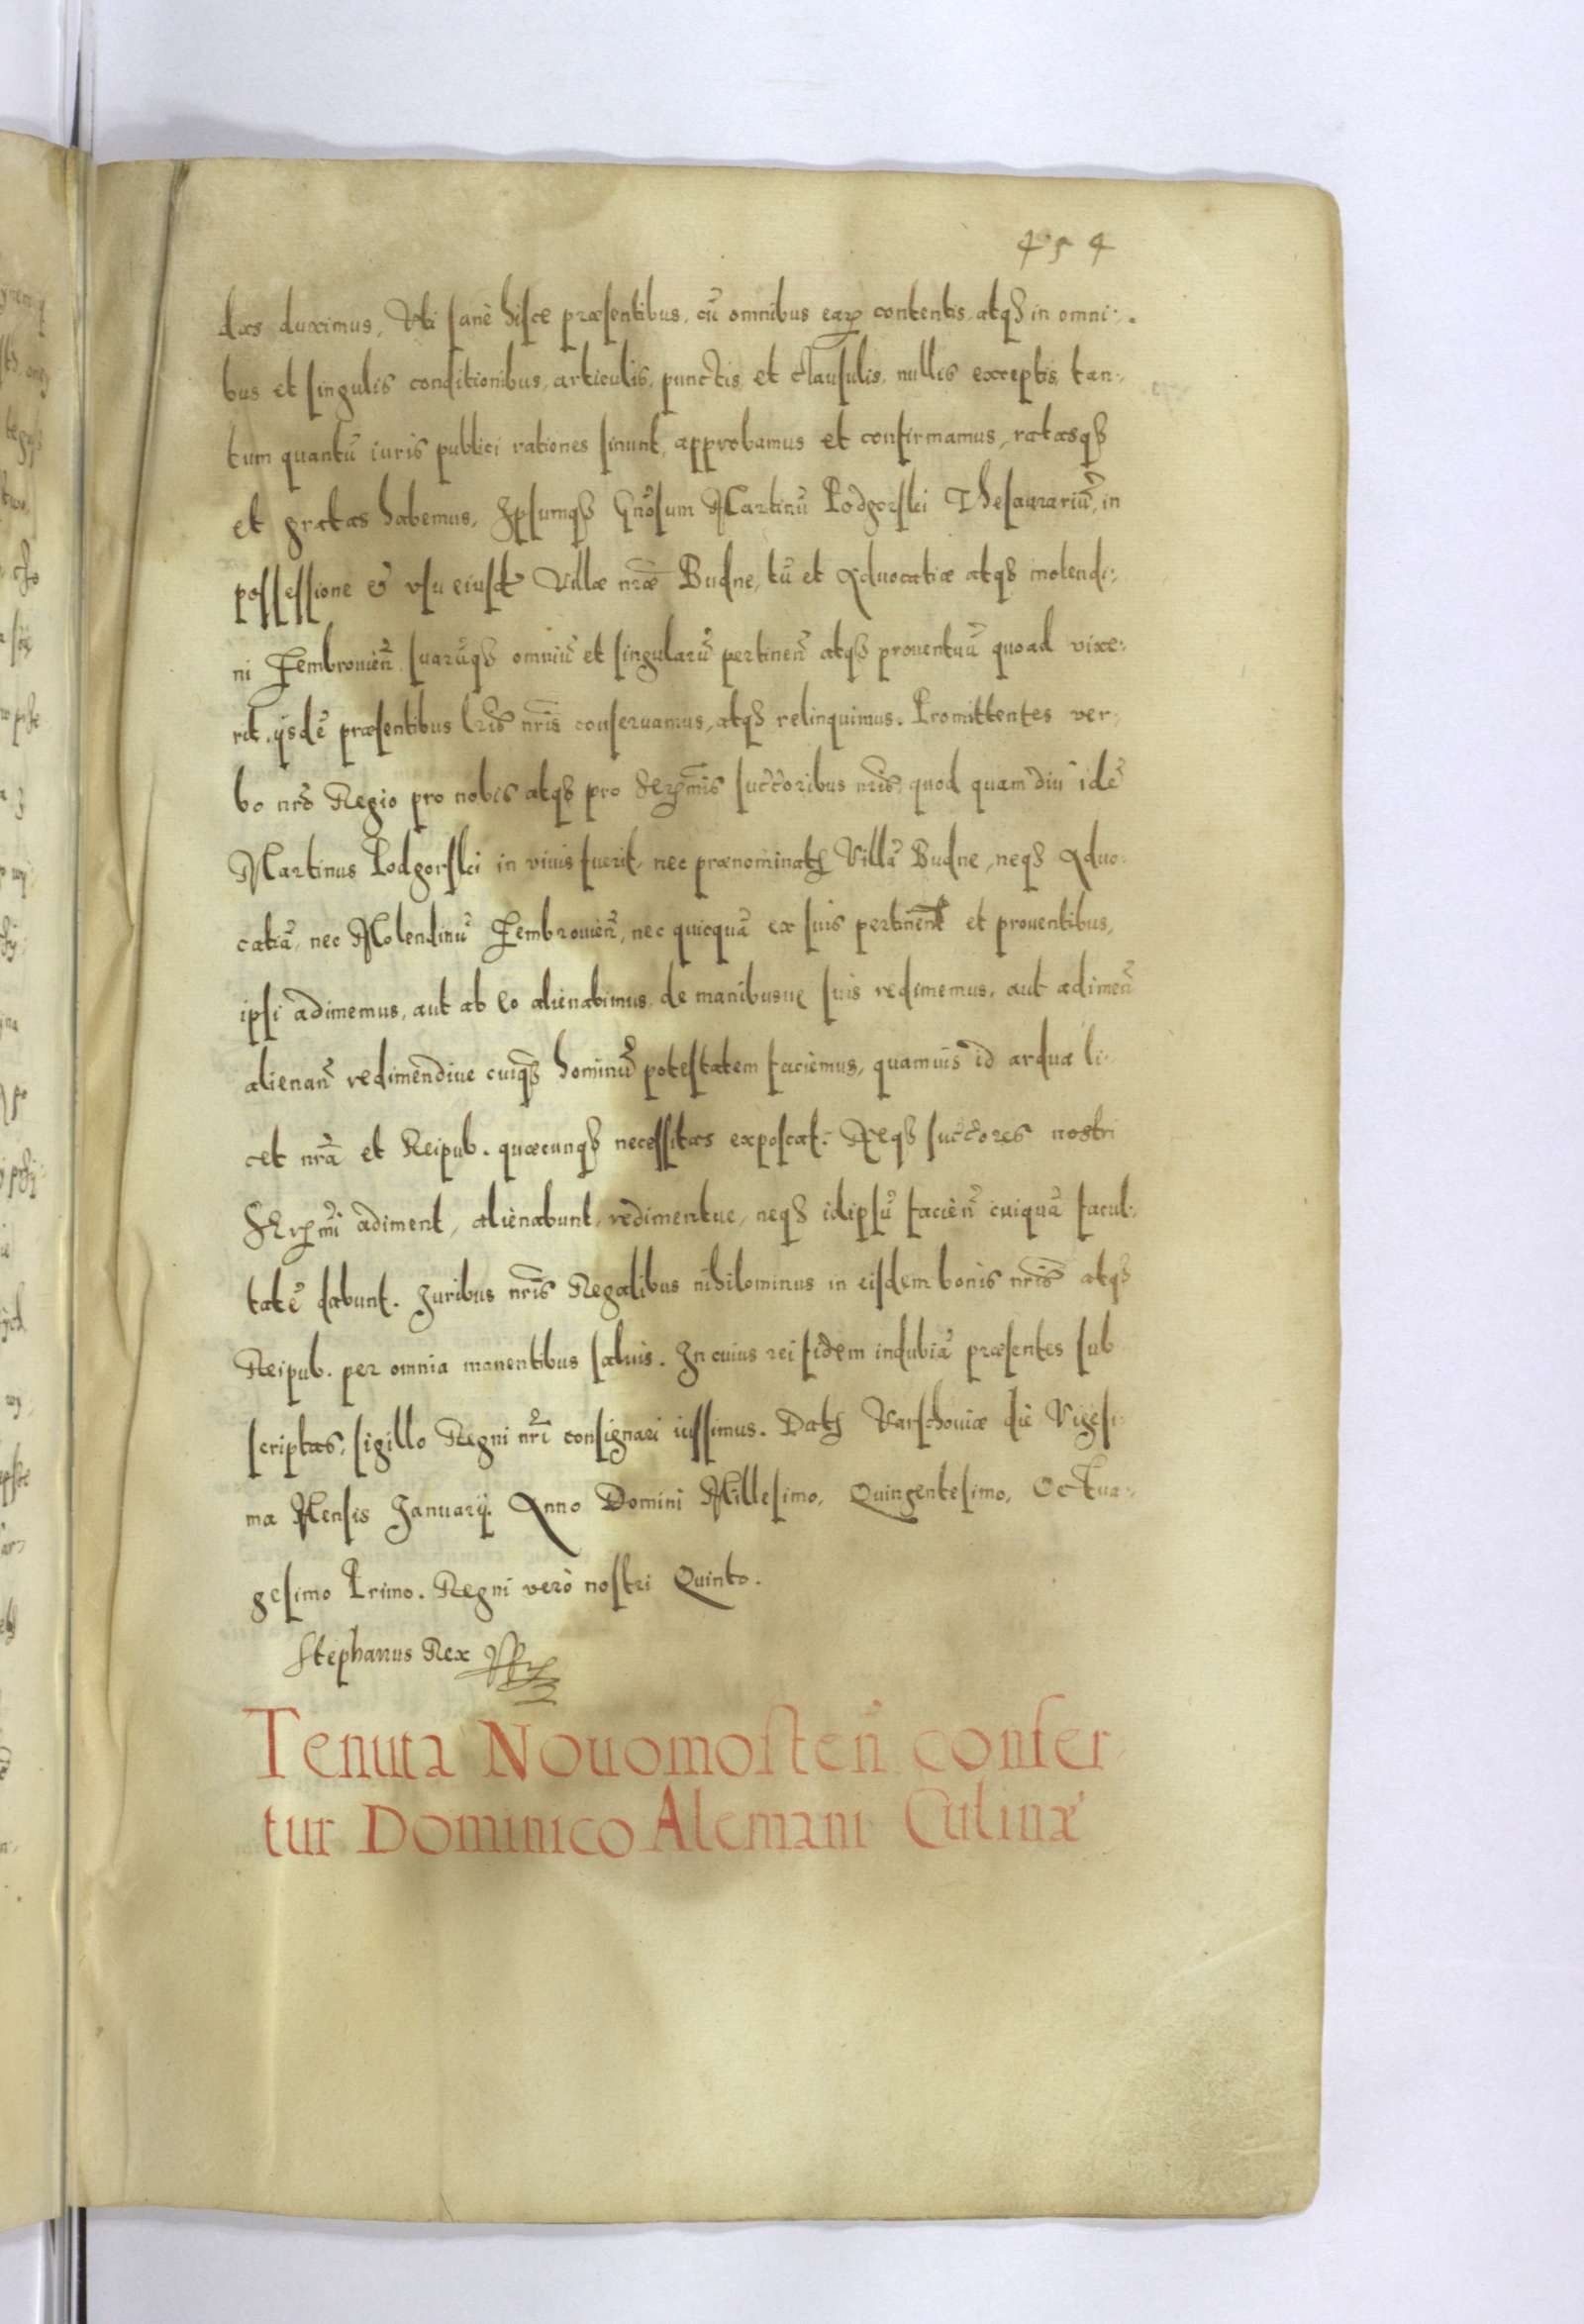 454
das duximus, Uti sanè hisce præsentibus, cũ omnibus earꝝ contentis, atqȝ in omni-
bus et singulis conditionibus, articulis, punctis, et clausulis, nullis exceptis, tan-
tum quantũ iuris publici rationes sinunt, approbamus et confirmamus, ratasqȝ
et gratas habemus, Ipsumqȝ Gnõsum Martinũ Podgorski Thesaurariũ, in
possessione et vsu eiusd Villæ nr̃æ Budne, tũ et Aduocatiæ atqȝ molendi-
ni Zembrouień, suarũqȝ omniũ et singularũ pertineń atqȝ prouentuũ quoad vixe-
rit, ijsdẽ præsentibus lr̃is nr̃is conseruamus, atqȝ relinquimus. Promittentes ver-
bo nr̃o Regio pro nobis atqȝ pro Serꝑmis succ̃oribus nr̃is, quod quam diu idẽ
Martinus Podgorski in viuis fuerit, nec prænominatȝ Villã Budne, neqȝ Aduo-
catiã, nec Molendinũ Zembrouień, nec quicquã ex suis pertineñt et prouentibus,
ipsi adimemus, aut ab eo alienabimus, de manibusue suis redimemus, aut adimeñ
alienañ redimendiue cuiqȝ hominũ potestatem faciemus, quamuis id ardua li-
cet nr̃a et Reipub. quæcunqȝ necessitas exposcat. Neqȝ succ̃ores nostri
Serꝑmi adiment, alienabunt, redimentue, neqȝ idipsũ facieñ cuiquã facul-
tatẽ dabunt. Iuribus nr̃is Regalibus nihilominus in eisdem bonis nr̃is atqȝ
Reipub. per omnia manentibus saluis. In cuius rei fidem indubiã præsentes sub
scriptas, sigillo Regni nr̃i consignari iussimus. Datȝ Varschouiæ die Vigesi-
ma Mensis Januarij. Anno Domini Millesimo, Quingentesimo, Octua-
gesimo Primo. Regni verò nostri Quinto.
Stephanus Rex
Tenuta Nouomosteñ confer-
tur Dominico Alemani Culinæ